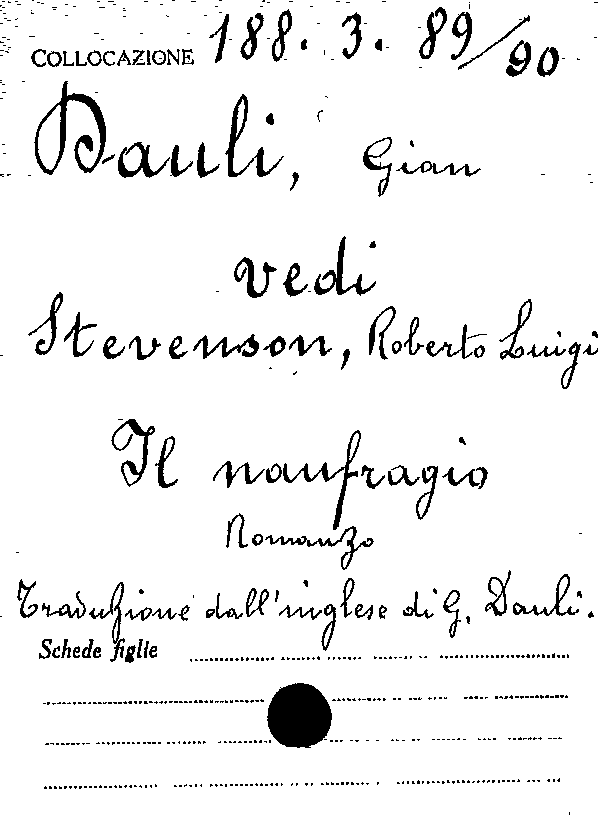 COLLOCAZIONE 188. 3. 89/90
Dauli, Gian
vedi
Stevenson, Roberto Luigi
Il naufragio
Romanzo
Traduzione dall'inglese di G. Dauli.
Schede figlie